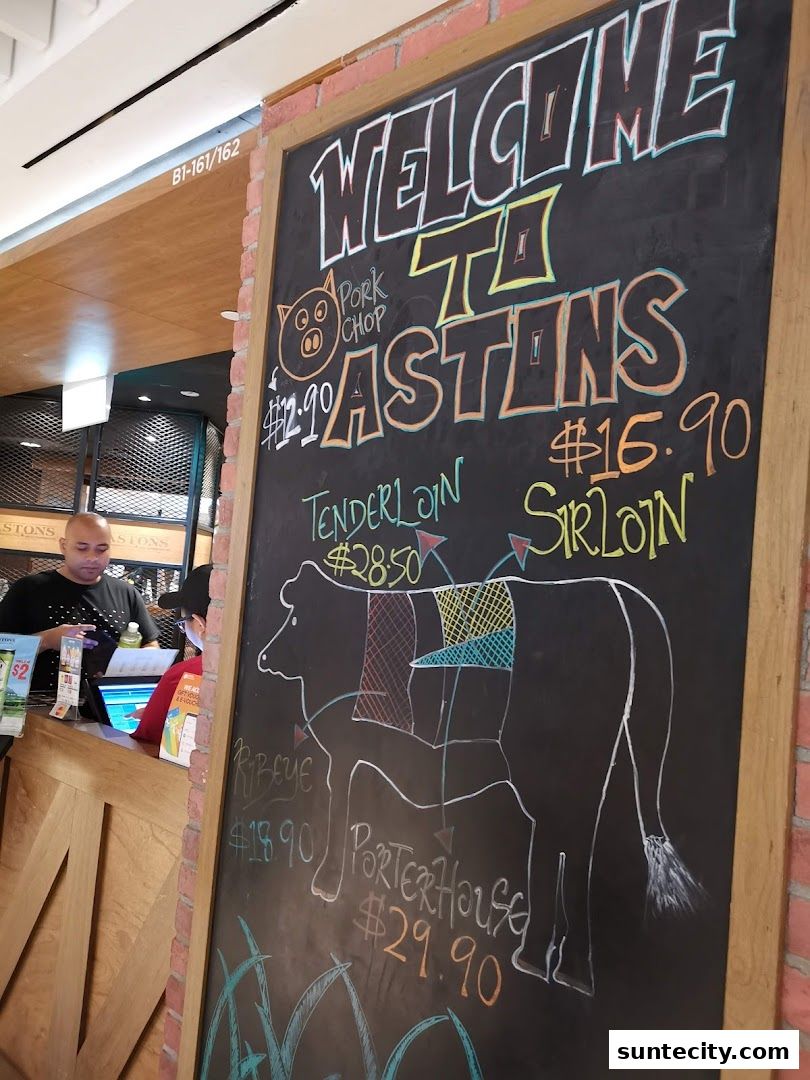 B1-161/162
WELCOME
TO
ASTONS
PORK
CHOP
$12.90
$16.90
TENDERLOIN
$28.50
SIRLOIN
RIBEYE
$18.90
PORTERHOUSE
$29.90
ASTONS
ASTONS
$2
suntecity.com